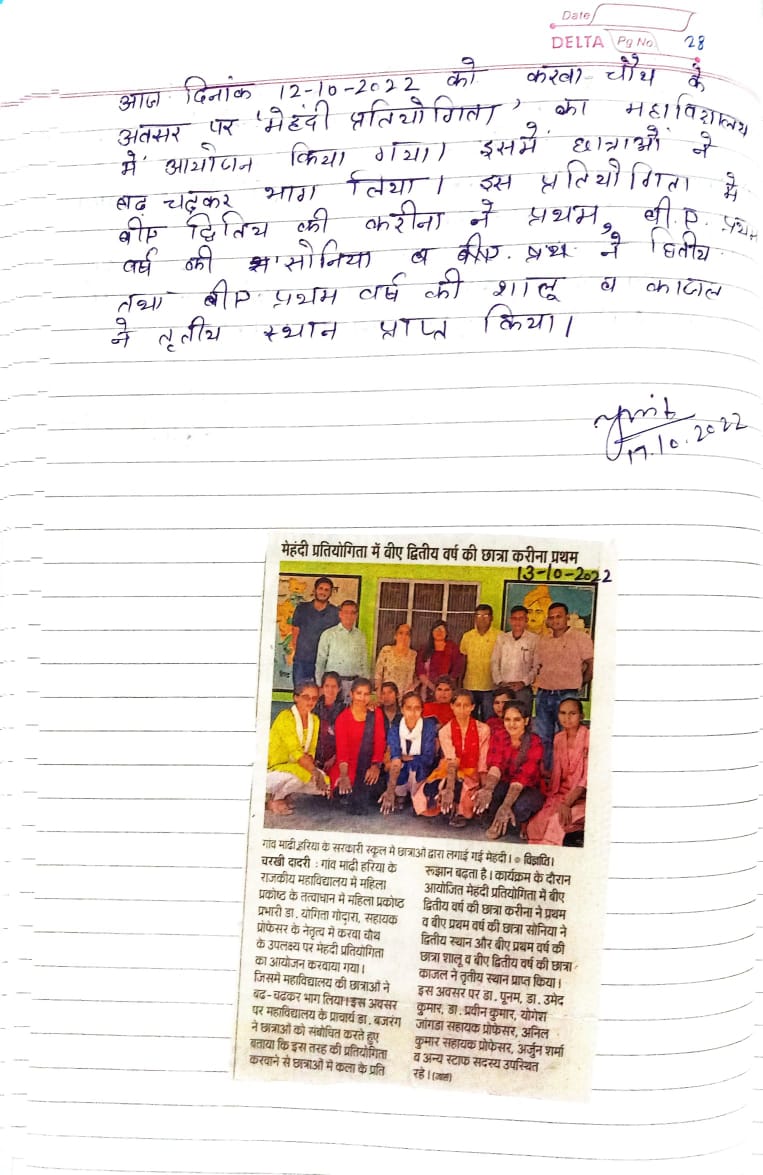 Date
DELTA Pg No. 28
आज दिनांक 12-10-2022 को करवा-चौथ के
अवसर पर 'मेहंदी प्रतियोगिता' का महाविद्यालय
में आयोजन किया गया। इसमें छात्राओं ने
बढ़ चढ़कर भाग लिया। इस प्रतियोगिता में
बीए द्वितिय की करीना ने प्रथम, बी.ए. प्रथम
वर्ष की सोनिया व बीए. प्रथ ने द्वितीय
तथा बीए प्रथम वर्ष की शालू व काजल
ने तृतीय स्थान प्राप्त किया।
17.10.2022
मेहंदी प्रतियोगिता में बीए द्वितीय वर्ष की छात्रा करीना प्रथम
13-10-2022
गांव माढ़ी हरिया के सरकारी स्कूल में छात्राओं द्वारा लगाई गई मेहदी। ● विज्ञप्ति।
चरखी दादरी : गांव माढ़ी हरिया के
राजकीय महाविद्यालय में महिला
प्रकोष्ठ के तत्वाधान में महिला प्रकोष्ठ
प्रभारी डा. योगिता गोदारा, सहायक
प्रोफेसर के नेतृत्व में करवा चौथ
के उपलक्ष्य पर मेहंदी प्रतियोगिता
का आयोजन करवाया गया।
जिसमे महाविद्यालय की छात्राओं ने
बढ- चढकर भाग लिया। इस अवसर
पर महाविद्यालय के प्राचार्य डा. बजरंग
ने छात्राओं को संबोधित करते हुए
बताया कि इस तरह की प्रतियोगिता
करवाने से छात्राओं में कला के प्रति
रूझान बढ़ता है। कार्यक्रम के दौरान
आयोजित मेहंदी प्रतियोगिता में बीए
द्वितीय वर्ष की छात्रा करीना ने प्रथम
व बीए प्रथम वर्ष की छात्रा सोनिया ने
द्वितीय स्थान और बीए प्रथम वर्ष की
छात्रा शालू व बीए द्वितीय वर्ष की छात्रा
काजल ने तृतीय स्थान प्राप्त किया।
इस अवसर पर डा. पूनम, डा. उमेद
कुमार, डा. प्रवीन कुमार, योगेश
जांगडा सहायक प्रोफेसर, अनिल
कुमार सहायक प्रोफेसर, अर्जुन शर्मा
व अन्य स्टाफ सदस्य उपस्थित
रहे। (जासं)